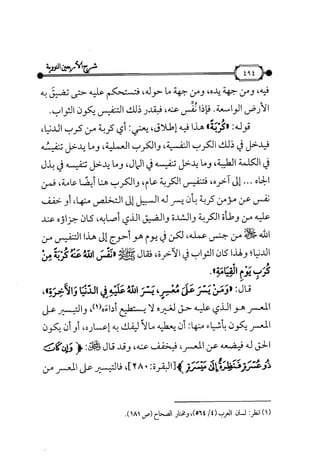 شرح الأربعين النووية
٤٩٤
فيه، ومن جهة يده، ومن جهة ما حوله، فتستحكم عليه حتى تضيق به
الأرض الواسعة. فإذا نُفّس عنه، فبقدر ذلك التنفيس يكون الثواب.
قوله: «كُرْبَةً» هذا فيه إطلاق، يعني: أي كربة من كرب الدنيا،
فيدخل في ذلك الكرب النفسية، والكرب العملية، وما يدخل تنفيسُه
في الكلمة الطيبة، وما يدخل تنفيسه في المال، وما يدخل تنفيسه في بذل
الجاه ... إلى آخره، فتنفيس الكربة عام، والكرب هنا أيضًا عامة، فمن
نفس عن مؤمن كربة بأن يسر له السبيل إلى التخلص منها، أو خفف
عليه من وطأة الكربة والشدة والضيق الذي أصابه، كان جزاؤه عند
الله من جنس عمله، لكن في يوم هو أحوج إلى هذا التنفيس من
الدنيا؛ ولهذا كان الثواب في الآخرة، فقال ﷺ: «نَفَّسَ اللهُ عَنْهُ كُرْبَةً مِنْ
كُرَبِ يَوْمِ الْقِيَامَةِ».
قال: «وَمَنْ يَسَّرَ عَلَى مُعْسِرٍ، يَسَّرَ اللهُ عَلَيْهِ فِي الدُّنْيَا وَالْآخِرَةِ»،
المعسر هو الذي عليه حق لغيره لا يستطيع أداءَه(١)، والتيسير على
المعسر يكون بأشياء منها: أن يعطيه مالًا ليفك به إعساره، أو أن يكون
الحق له فيضعه عن المعسر، فيخفف عنه، وقد قال: ﴿وَإِن كَانَ
ذُو عُسْرَةٍ فَنَظِرَةٌ إِلَىٰ مَيْسَرَةٍ﴾ [البقرة: ٢٨٠]، فالتيسير على المعسر من
(١) انظر: لسان العرب (٤/ ٥٦٤)، ومختار الصحاح (ص ١٨١).